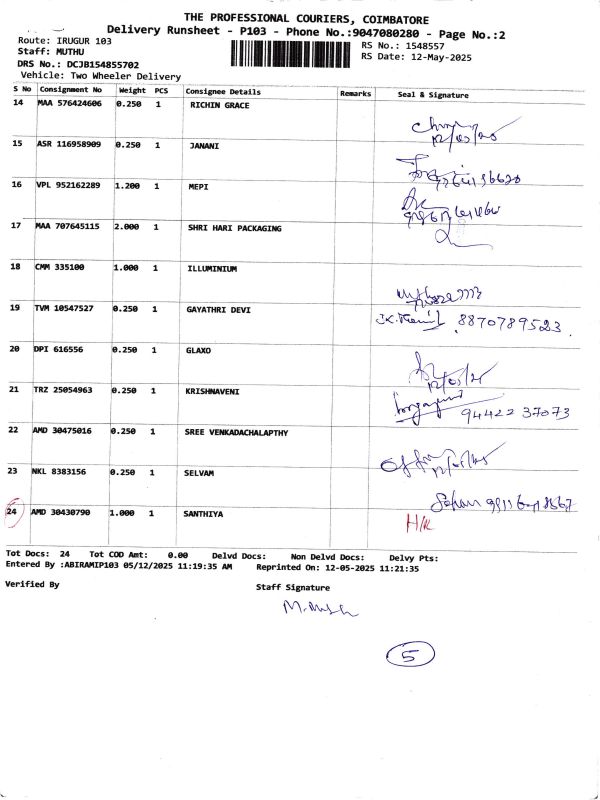 THE PROFESSIONAL COURIERS, COIMBATORE
Delivery Runsheet - P103 - Phone No.:9047080280 - Page No.:2
Route: IRUGUR 103
RS No.: 1548557
Staff: MUTHU
RS Date: 12-May-2025
DRS No.: DCJB154855702
Vehicle: Two Wheeler Delivery
S No Consignment No Weight PCS Consignee Details Remarks Seal & Signature
14 MAA 576424606 0.250 1 RICHIN GRACE
12/05/25
15 ASR 116958909 0.250 1 JANANI
16 VPL 952162289 1.200 1 MEPI
17 MAA 707645115 2.000 1 SHRI HARI PACKAGING
18 CMM 335100 1.000 1 ILLUMINIUM
19 TVM 10547527 0.250 1 GAYATHRI DEVI
8870789523
20 DPI 616556 0.250 1 GLAXO
12/05/25
21 TRZ 25054963 0.250 1 KRISHNAVENI
94422 37073
22 AMD 30475016 0.250 1 SREE VENKADACHALAPTHY
12/05/25
23 NKL 8383156 0.250 1 SELVAM
24 AMD 30430790 1.000 1 SANTHIYA
H/R
Tot Docs: 24 Tot COD Amt: 0.00 Delvd Docs: Non Delvd Docs: Delvy Pts:
Entered By :ABIRAMIP103 05/12/2025 11:19:35 AM Reprinted On: 12-05-2025 11:21:35
Verified By
Staff Signature
5